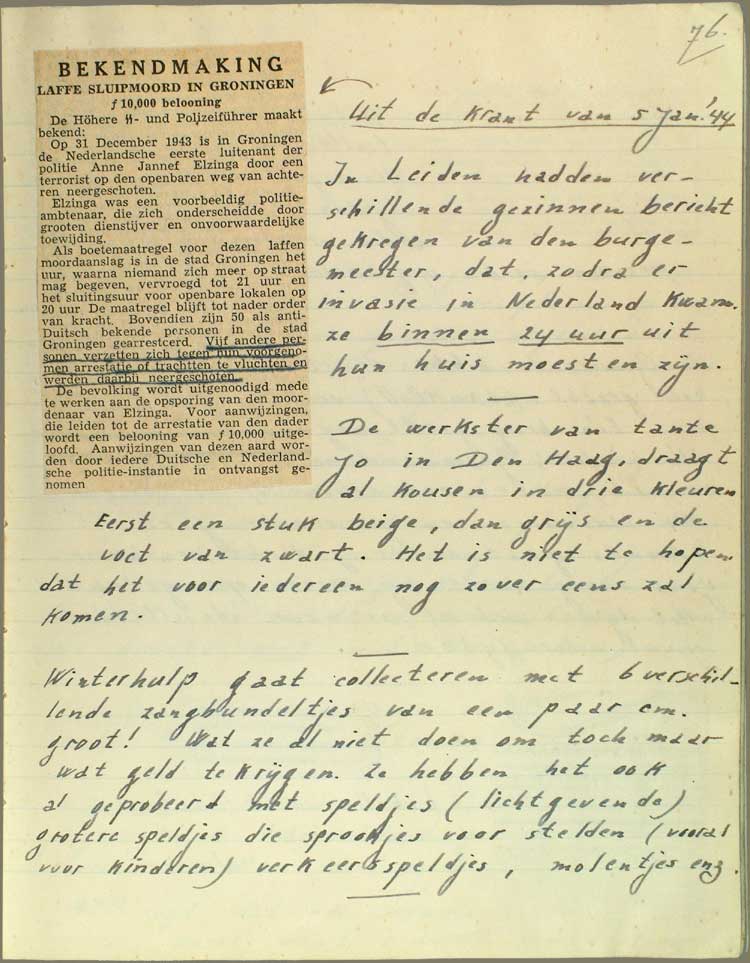 76.
BEKENDMAKING
LAFFE SLUIPMOORD IN GRONINGEN
ƒ 10,000 belooning
De Höhere SS- und Polizeiführer maakt
bekend:
Op 31 December 1943 is in Groningen
de Nederlandsche eerste luitenant der
politie Anne Jannef Elzinga door een
terrorist op den openbaren weg van achte-
ren neergeschoten.
Elzinga was een voorbeeldig politie-
ambtenaar, die zich onderscheidde door
grooten dienstijver en onvoorwaardelijke
toewijding.
Als boetemaatregel voor dezen laffen
moordaanslag is in de stad Groningen het
uur, waarna niemand zich meer op straat
mag begeven, vervroegd tot 21 uur en
het sluitingsuur voor openbare lokalen op
20 uur De maatregel blijft tot nader order
van kracht. Bovendien zijn 50 als anti-
Duitsch bekende personen in de stad
Groningen gearresteerd. Vijf andere per-
sonen verzetten zich tegen hun voorgeno-
men arrestatie of trachtten te vluchten en
werden daarbij neergeschoten.
De bevolking wordt uitgenoodigd mede
te werken aan de opsporing van den moor-
denaar van Elzinga. Voor aanwijzingen,
die leiden tot de arrestatie van den dader
wordt een belooning van ƒ 10,000 uitge-
loofd. Aanwijzingen van dezen aard wor-
den door iedere Duitsche en Nederland-
sche politie-instantie in ontvangst ge-
nomen
Uit de Krant van 5 Jan.'44
In Leiden hadden ver-
schillende gezinnen bericht
gekregen van den burge-
meester, dat, zodra er
invasie in Nederland kwam.
ze binnen 24 uur uit
hun huis moesten zijn.
De werkster van tante
Jo in Den Haag, draagt
al kousen in drie kleuren
Eerst een stuk beige, dan grijs en de
voet van zwart. Het is niet te hopen
dat het voor iedereen nog zover eens zal
komen.
Winterhulp gaat collecteren met 6 verschil-
lende zangbundeltjes van een paar cm.
groot! Wat ze al niet doen om toch maar
wat geld te krijgen. Ze hebben het ook
al geprobeerd met speldjes (lichtgevende)
grotere speldjes die sprookjes voor stelden (vooral
voor kinderen) verkeersspeldjes, molentjes enz.